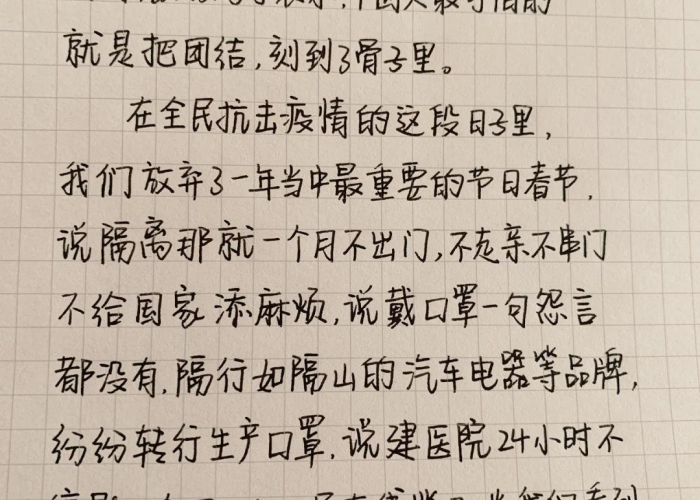 中国人最可怕的
就是把团结,刻到了骨子里。
在全民抗击疫情的这段日子里,
我们放弃了一年当中最重要的节日春节,
说隔离那就一个月不出门,不走亲不串门
不给国家添麻烦,说戴口罩一句怨言
都没有,隔行如隔山的汽车电器等品牌,
纷纷转行生产口罩,说建医院24小时不